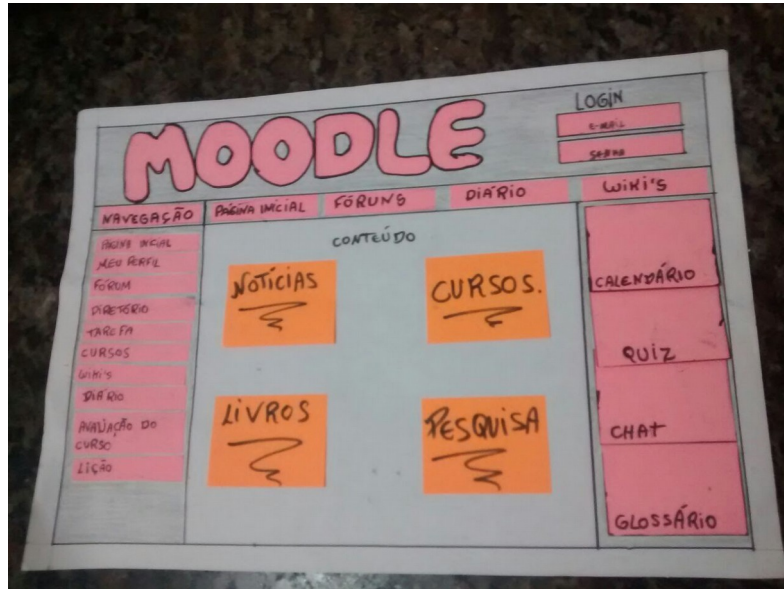 MOODLE
LOGIN
E-MAIL
SENHA
NAVEGAÇÃO
PÁGINA INICIAL
FÓRUNS
DIÁRIO
WIKI'S
PÁGINA INICIAL
MEU PERFIL
FÓRUM
DIRETÓRIO
TAREFA
CURSOS
WIKI'S
DIÁRIO
AVALIAÇÃO DO
CURSO
LIÇÃO
CONTEÚDO
NOTÍCIAS
CURSOS.
LIVROS
PESQUISA
CALENDÁRIO
QUIZ
CHAT
GLOSSÁRIO